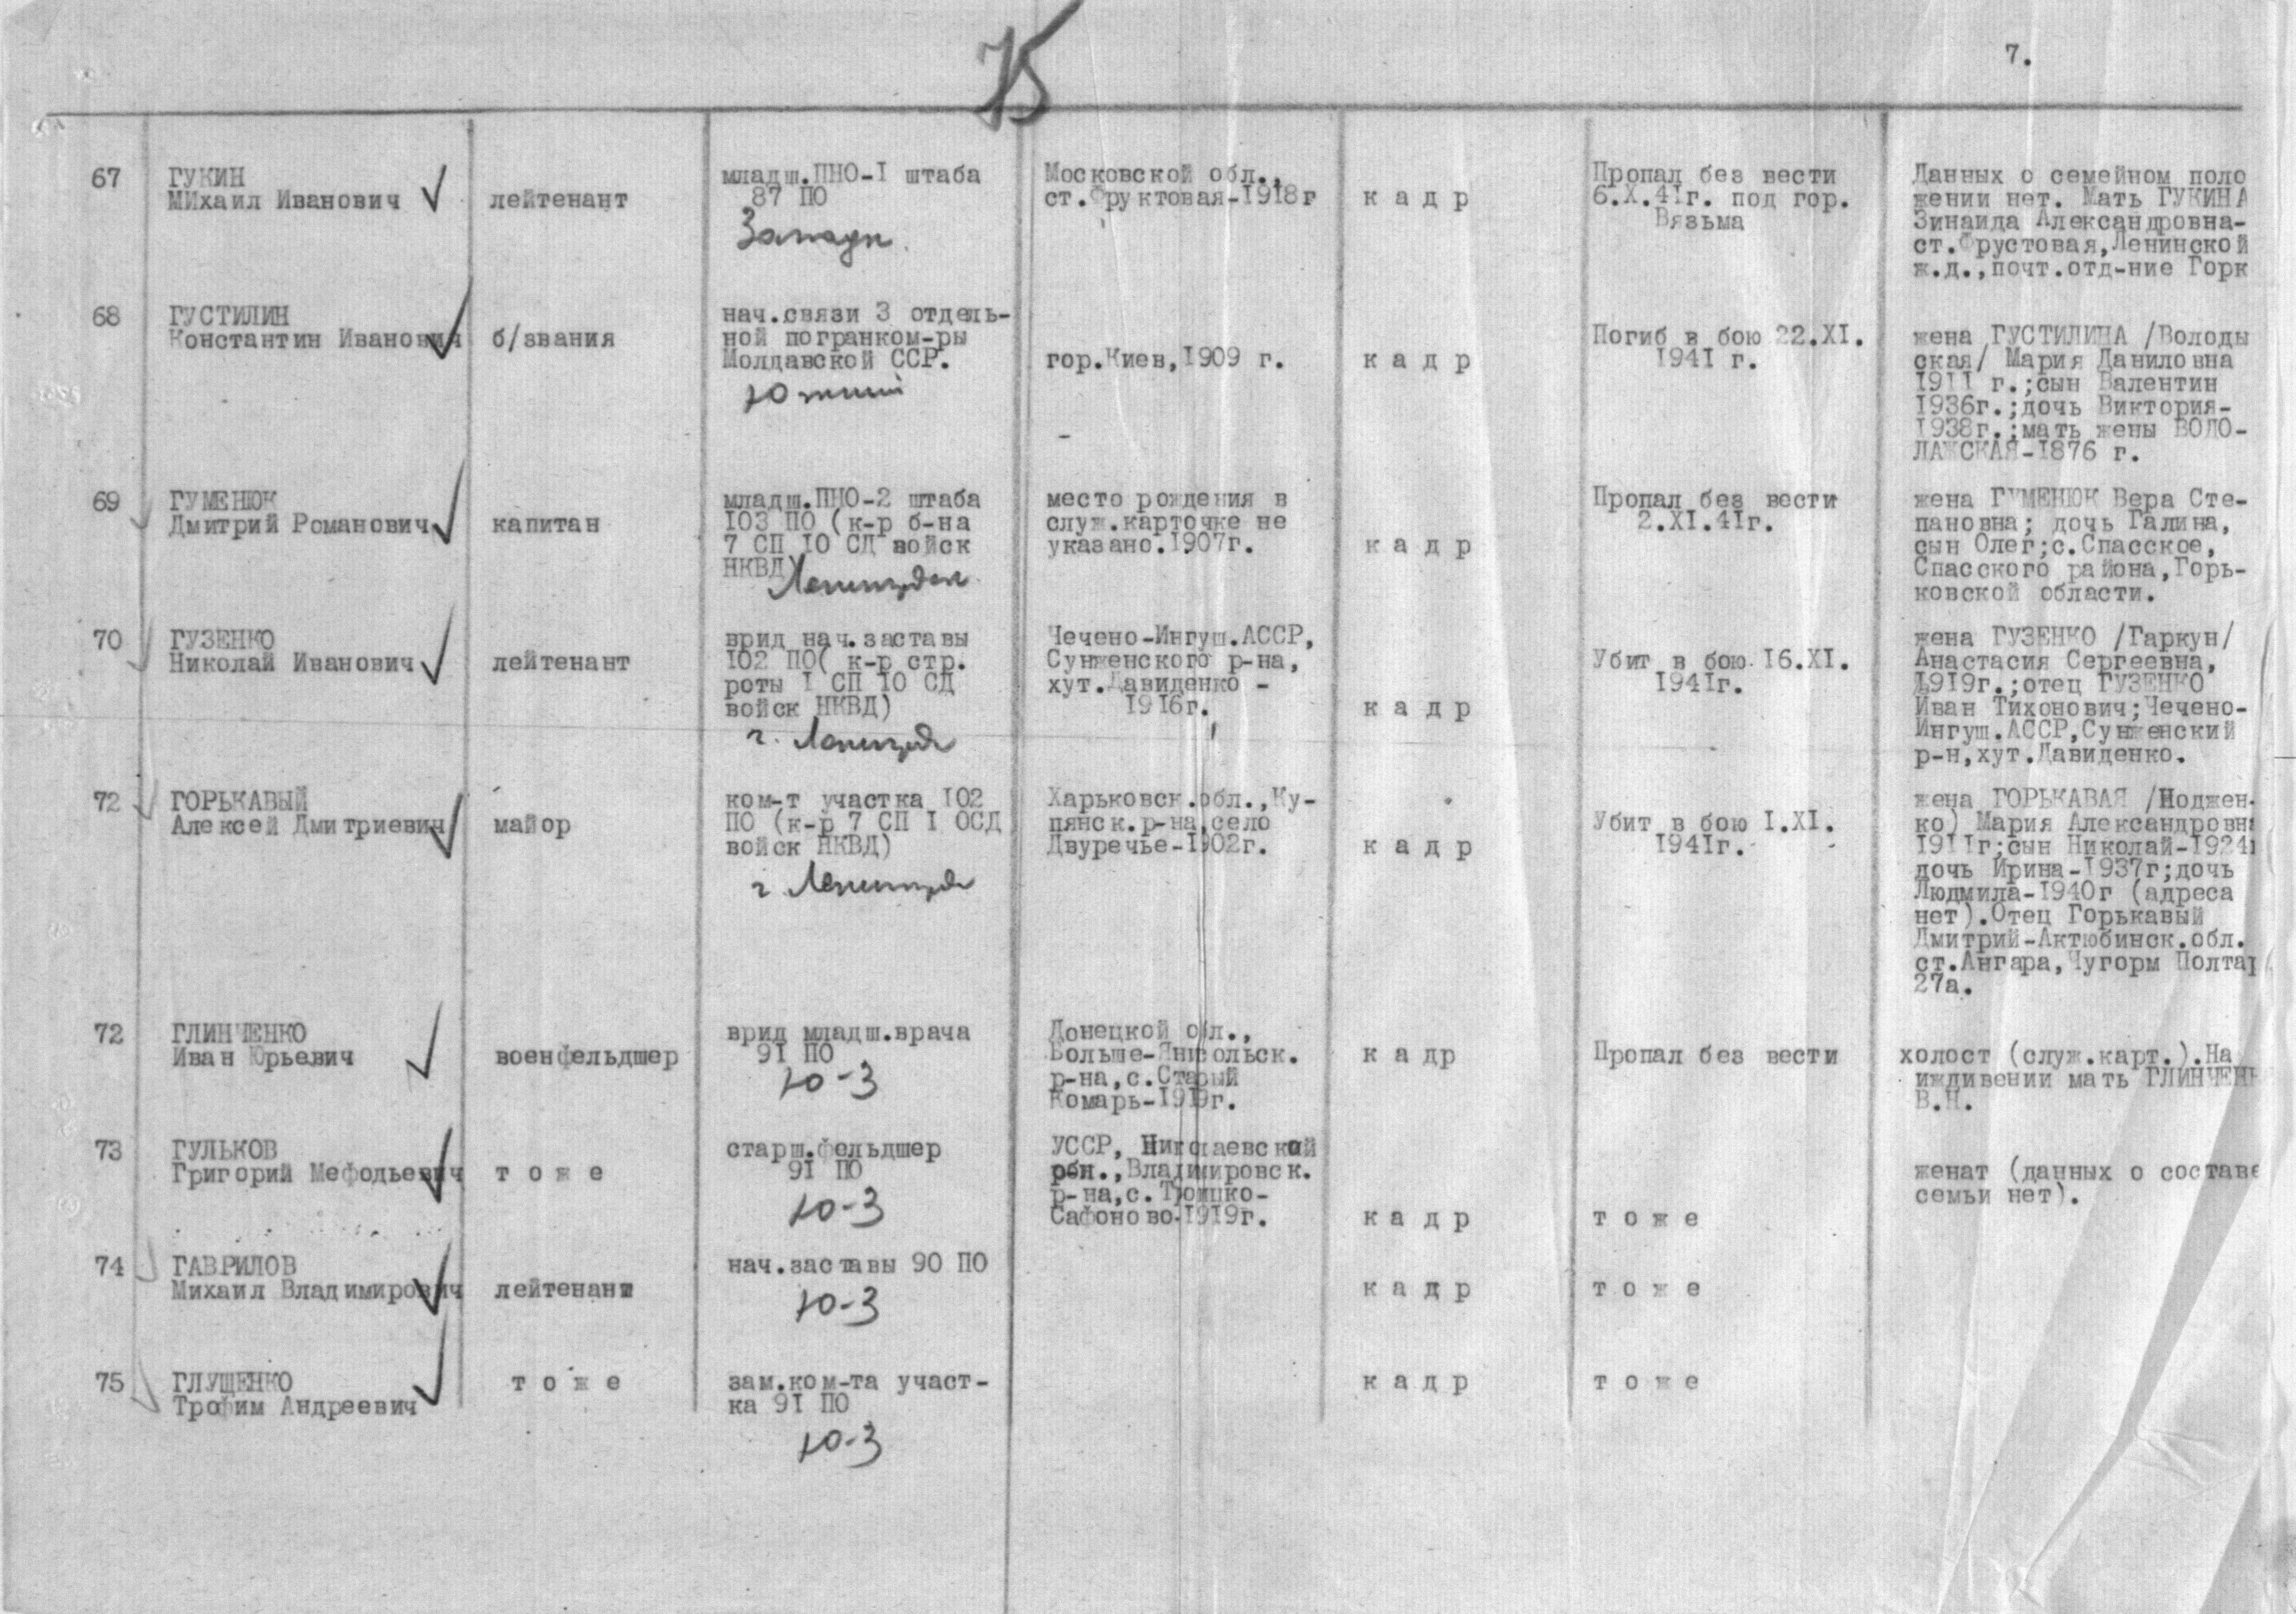 75
7.
67
ГУКИН
МИхаил Иванович
лейтенант
младш.ПНО-I штаба
87 ПО
Западн.
Московской обл.,
ст.Фруктовая-I918г
к а д р
Пропал без вести
6.X.4Iг. под гор.
Вязьма
Данных о семейном поло
жении нет. Мать ГУКИНА
Зинаида Александровна-
ст.Фрустовая,Ленинской
ж.д.,почт.отд-ние Горк
68
ГУСТИЛИН
Константин Иванович
б/звания
нач.связи 3 отдель-
ной погранком-ры
Молдавской ССР.
Южный
гор.Киев,I909 г.
к а д р
Погиб в бою 22.XI.
I94I г.
жена ГУСТИЛИНА /Володы
ская/ Мария Даниловна
I9II г.;сын Валентин
I936г.;дочь Виктория-
I938г.;мать жены ВОЛО-
ЛАЖСКАЯ-I876 г.
69
ГУМЕНЮК
Дмитрий Романович
капитан
младш.ПНО-2 штаба
I03 ПО (к-р б-на
7 СП I0 СД войск
НКВД)
место рождения в
служ.карточке не
указано.I907г.
к а д р
Пропал без вести
2.XI.4Iг.
жена ГУМЕНЮК Вера Сте-
пановна; дочь Галина,
сын Олег;с.Спасское,
Спасского района,Горь-
ковской области.
70
ГУЗЕНКО
Николай Иванович
лейтенант
врид нач.заставы
I02 ПО( к-р стр.
роты I СП I0 СД
войск НКВД)
Чечено-Ингуш.АССР,
Сунженского р-на,
хут.Давиденко -
I9I6г.
к а д р
Убит в бою I6.XI.
I94Iг.
жена ГУЗЕНКО /Гаркун/
Анастасия Сергеевна,
I9I9г.;отец ГУЗЕНКО
Иван Тихонович;Чечено-
Ингуш.АССР,Сунженский
р-н,хут.Давиденко.
72
ГОРЬКАВЫЙ
Алексей Дмитриевич
майор
ком-т участка I02
ПО (к-р 7 СП I ОСД
войск НКВД)
Харьковск.обл.,Ку-
пянск.р-на,село
Двуречье-I902г.
к а д р
Убит в бою I.XI.
I94Iг.
жена ГОРЬКАВАЯ /Ноджен-
ко) Мария Александровна
I9IIг;сын Николай-I924г
дочь Ирина-I937г;дочь
Людмила-I940г (адреса
нет).Отец Горькавый
Дмитрий-Актюбинск.обл.
ст.Ангара,Чугорм Полтар
27а.
72
ГЛИНЧЕНКО
Иван Юрьевич
военфельдшер
врид младш.врача
9I ПО
Ю-З
Донецкой обл.,
Больше-Янисольск.
р-на,с.Старый
Комарь-I9I9г.
к а д р
Пропал без вести
холост (служ.карт.).На
иждивении мать ГЛИНЧЕНК
В.Н.
73
ГУЛЬКОВ
Григорий Мефодьевич
т о ж е
старш.фельдшер
9I ПО
Ю-З
УССР, Николаевской
обл.,Владимировск.
р-на,с.Троицко-
Сафоново-I9I9г.
к а д р
т о ж е
женат (данных о составе
семьи нет).
74
ГАВРИЛОВ
Михаил Владимирович
лейтенант
нач.заставы 90 ПО
Ю-З
к а д р
т о ж е
75
ГЛУЩЕНКО
Трофим Андреевич
т о ж е
зам.ком-та участ-
ка 9I ПО
Ю-З
к а д р
т о ж е